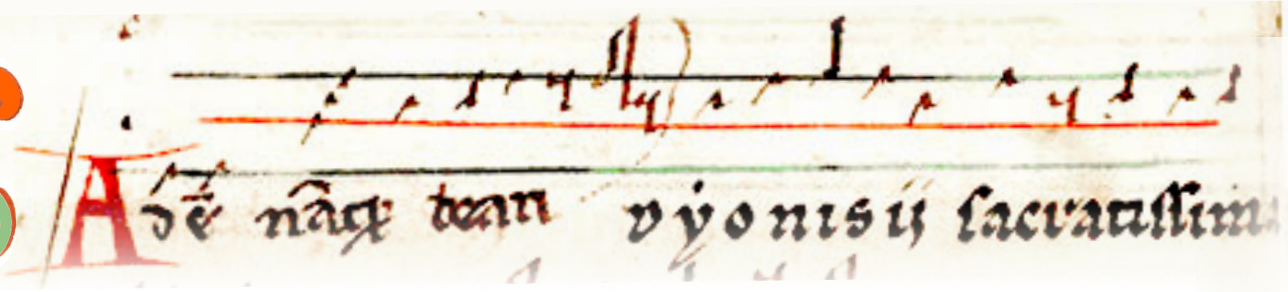 Adē nāctꝝ beati dyonisii sacratissim